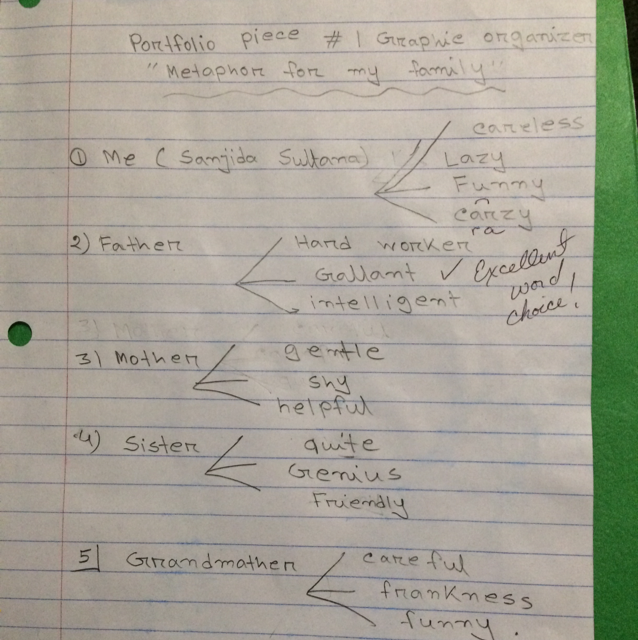 Portfolio piece # 1 Graphic organizer
"Metaphor for my family"
careless
① Me ( Sanjida Sultana)
Lazy
Funny
carzy
ra
2) Father
Hard worker
Gallant ✓ Excellent word choice!
intelligent
3) Mother
gentle
shy
helpful
4) Sister
quite
Genius
Friendly
5) Grandmather
careful
frankness
funny.